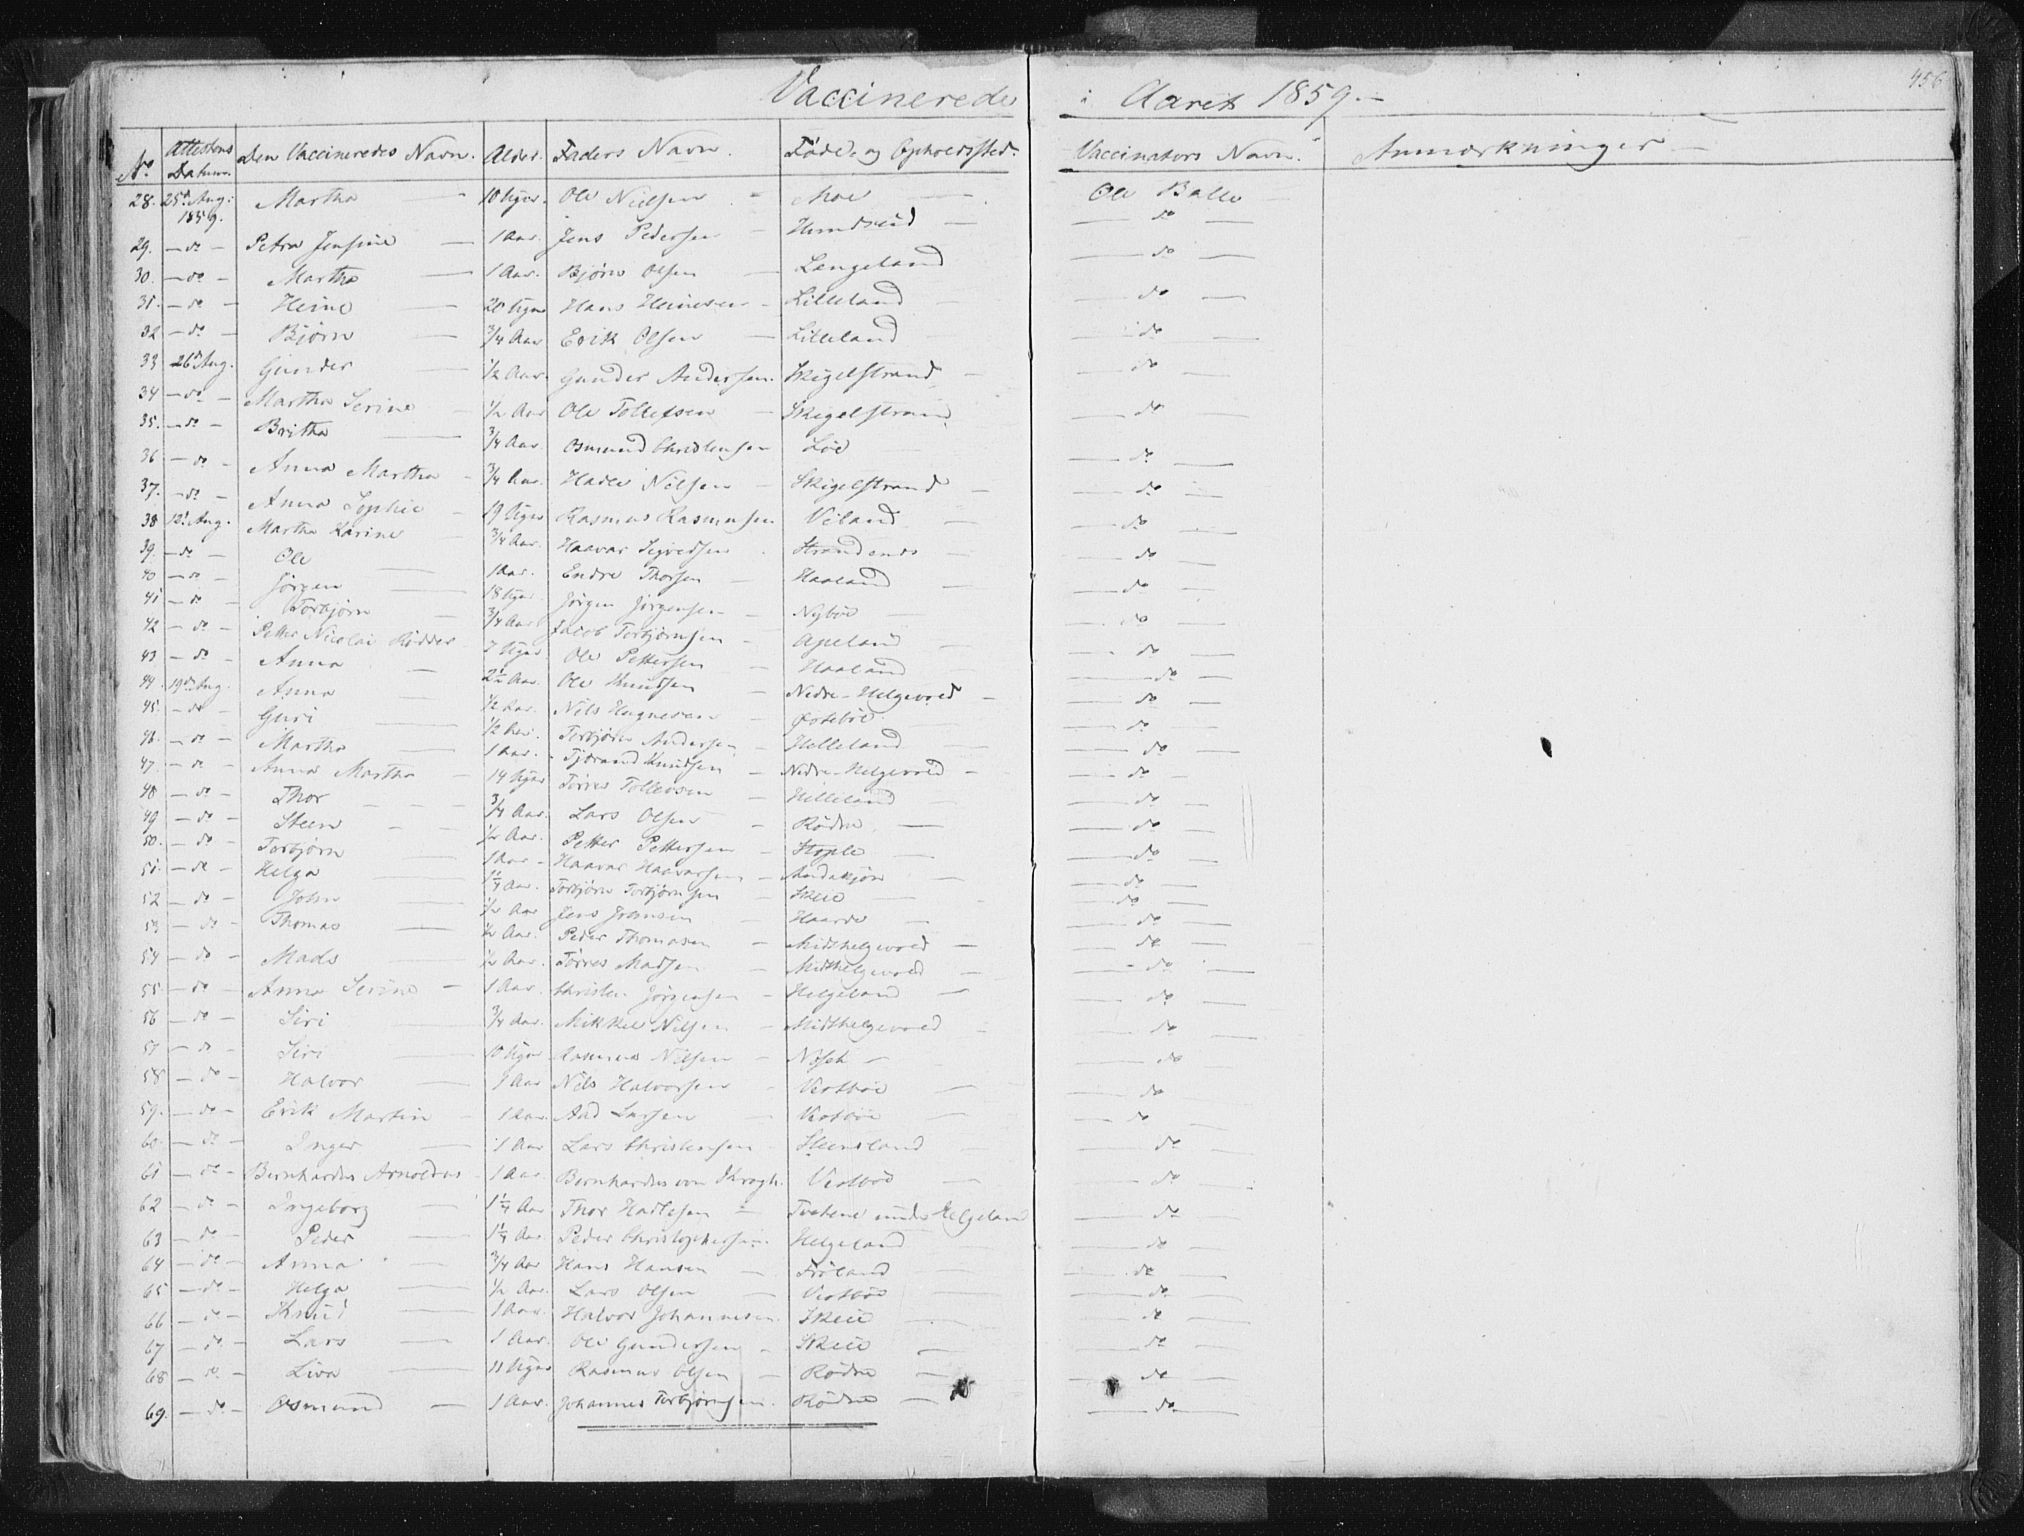 456
Vaccinerede i Aaret 1859.
No Attestens Datum. Den Vaccineredes Navn. Alder. Faders Navn. Føde- og Opholdssted. Vaccinators Navn. Anmærkninger
28. 25d Aug: 1859. Martha 10 Uger. Ole Nielsen Moe Ole Balle
29. do Petra Jensine 1 Aar. Jens Pedersen Hundseid do
30. do Martha 1 Aar. Bjørn Olsen Langeland do
31. do Heine 20 Uger Hans Heinesen Lilleland do
32 do Bjørn 3/4 Aar Erik Olsen Lilleland do
33 26d Aug. Gunder 1/2 Aar. Gunder Andersen. Skigelstrand do
34 do Martha Serine 1/2 Aar Ole Tollefsen Skigelstrand do
35. do Britha 3/4 Aar Osmund Christensen Løe do
36 do Anna Martha 3/4 Aar. Hadle Nilsen Skigelstrand do
37. do Anna Sophie 19 Uger Rasmus Rasmussen Viland do
38 12d Aug. Martha Karine 3/4 Aar. Haavar Sigvedsen Strandenes do
39. do Ole 1 Aar. Endre Thorsen Haaland do
40 do Jörgen 18 Uger Jörgen Jörgensen Nybøe do
41 do Torbjørn 3/4 Aar Jacob Torbjørnsen Apeland do
42 do Petter Nicolai Rödder 7 Uger Ole Pettersen Haaland do
43 do Anna 2 1/2 Aar. Ole Knudsen Nedre-Helgevold do
44. 19d Aug. Anna 1/2 Aar. Nils Hagnesen Østebøe do
45. do Guri 1/2 Aar. Torbjørn Andersen Helleland do
46. do Martha 1 Aar. Tjerand Knudsen Nedre-Helgevold do
47. do Anna Martha 14 Uger Tørres Tollevsen Helleland do
48 do Thor 3/4 Aar. Lars Olsen Rødne do
49 do Steen 1/2 Aar. Petter Pettersen Stople do
50. do Torbjørn 1 Aar Haavar Haavarsen do
51. do Helga 1 1/4 Aar. Torbjørn Torbjørnsen Skeie do
52 do John 1/2 Aar Jens Haarde do
53 do Thomas 1/2 Aar. Peder Thomasen Midthelgevold do
54 do Mads 1/2 Aar. Tørres Madsen Midthelgevold do
55. do Anna Serine 1 Aar. Christen Jörgensen Helgeland do
56 do Siri 3/4 Aar. Mikkel Nilsen Midthelgevold do
57 do Siri 10 Uger Rasmus Nilsen do
58 do Halvor 1 Aar Nils Halvorsen Vestbøe do
59. do Erik Martin 1 Aar. Aad Larsen Vestbøe do
60. do Inger 1 Aar Lars Christensen Steensland do
61 do Bernhardus Arnoldus 1 Aar. Bernhardus von Krogh. Vestbøe do
62 do Ingeborg 1 1/4 Aar Thor Hadlesen Tvetene under Helgeland do
63 do Peder 1 1/4 Aar. Peder Christophersen. Helgeland do
64 do Anna 3/4 Aar Hans Hansen Frøland do
65 do Helga 1/2 Aar. Lars Olsen Vestbøe do
66 do Knud 1 Aar. Halvor Johannesen. Skeie do
67 do Lars 1 Aar. Ole Gundersen Skeie do
68 do Liva 11 Uger Rasmus Olsen Rødne do
69. do Osmund 1 Aar. Johannes Torbjørnsen. Rødne do